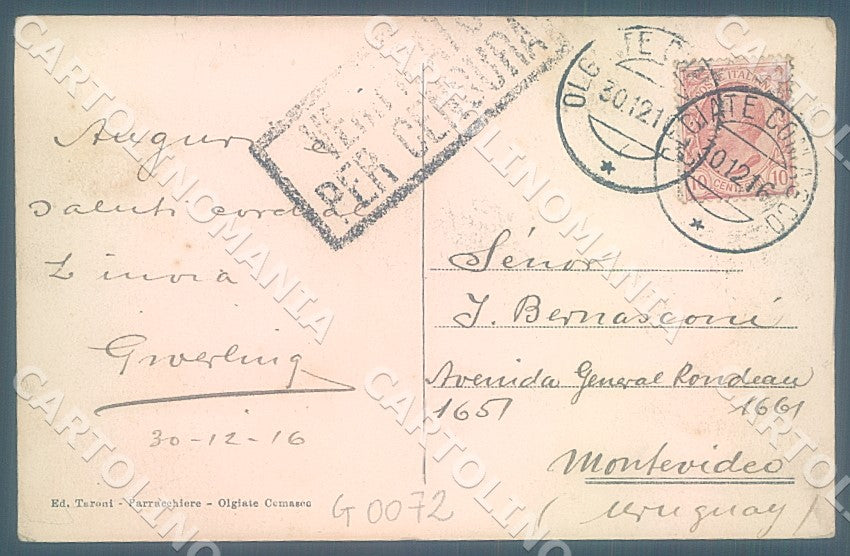 Auguri e
saluti cordiali
L'invia
Gwerling
30-12-16
Ed. Taroni - Parracchiere - Olgiate Comasco
G 0072
VERIFICATO
PER CENSURA
OLGIATE COMASCO
30.12.1
OLGIATE COMASCO
30.12.16
POSTE ITALIANE
10 CENTESIMI 10
Sénor
J. Bernasconi
Avenida General Rondeau
1651 1661
Montevideo
(Uruguay)
CARTOLINOMANIA